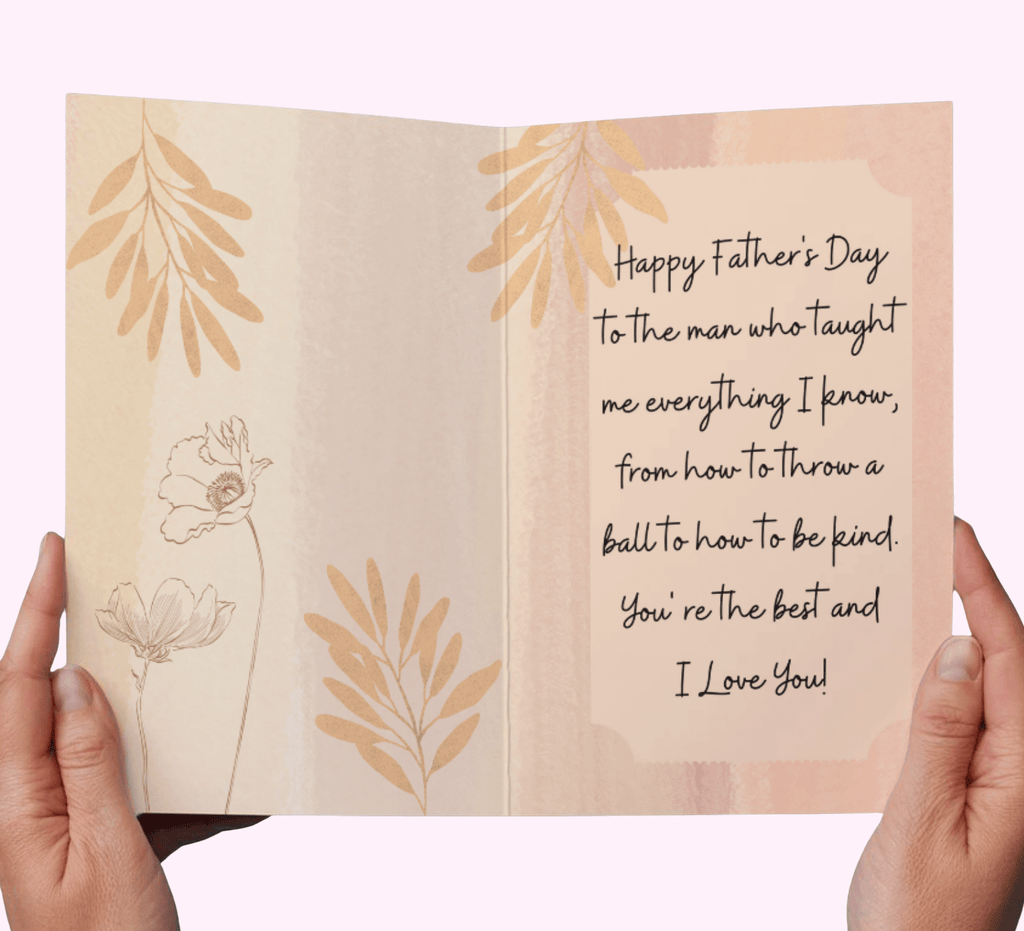 Happy Father's Day
to the man who taught
me everything I know,
from how to throw a
ball to how to be kind.
You're the best and
I Love You!